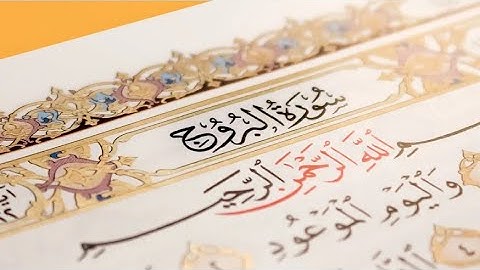 سُورَةُ البُرُوجِ
ـمِ اللَّهِ الرَّحْمَٰنِ الرَّحِيـــمِ
وَالْيَوْمِ الْمَوْعُودِ